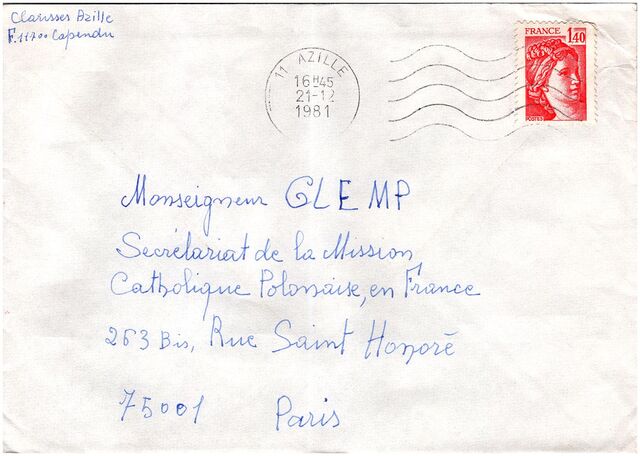 Clarisses Azille
F.11700 Capendu
FRANCE
1,40
POSTES
11 AZILLE
16H45
21-12
1981
Monseigneur GLEMP
Secrétariat de la Mission
Catholique Polonaise, en France
263 Bis, Rue Saint Honoré
75001 Paris